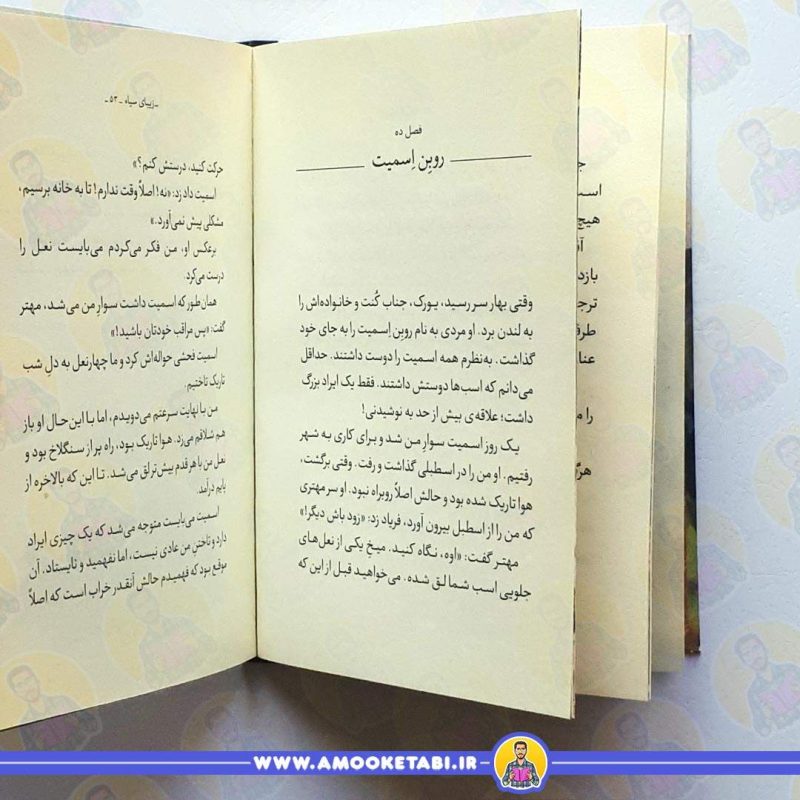 فصل ده
روبِن اِسمیت
وقتی بهار سر رسید، یورک، جناب کُنت و خانواده‌اش را
به لندن برد. او مردی به نام روبِن اِسمیت را به جای خود
گذاشت. به‌نظرم همه اسمیت را دوست داشتند. حداقل
می‌دانم که اسب‌ها دوستش داشتند. فقط یک ایراد بزرگ
داشت؛ علاقه‌ی بیش از حد به نوشیدنی!
یک روز اسمیت سوار من شد و برای کاری به شهر
رفتیم. او من را در اسطبلی گذاشت و رفت. وقتی برگشت،
هوا تاریک شده بود و حالش اصلاً روبراه نبود. او سر مهتری
که من را از اسطبل بیرون آورد، فریاد زد: «زود باش دیگر!»
مهتر گفت: «اوه، نگاه کنید. میخ یکی از نعل‌های
جلویی اسب شما لق شده. می‌خواهید قبل از این که
ـ زیبای سیاه ـ ۵۳ ـ
حرکت کنید، درستش کنم؟»
اسمیت داد زد: «نه! اصلاً وقت ندارم! تا به خانه برسیم،
مشکلی پیش نمی‌آورد.»
برعکس او، من فکر می‌کردم می‌بایست نعل را
درست می‌کرد.
همان‌طور که اسمیت داشت سوار من می‌شد، مهتر
گفت: «پس مراقب خودتان باشید!»
اسمیت فحشی حواله‌اش کرد و ما چهارنعل به دلِ شب
تاریک تاختیم.
من با نهایت سرعتم می‌دویدم، اما با این‌حال او باز
هم شلاقم می‌زد. هوا تاریک بود، راه پر از سنگلاخ بود و
نعل من با هر قدم بیش‌تر لق می‌شد. تا این که بالاخره از
پایم درآمد.
اسمیت می‌بایست متوجه می‌شد که یک چیزی ایراد
دارد و تاختنِ من عادی نیست، اما نفهمید و نایستاد. آن
موقع بود که فهمیدم حالش آنقدر خراب است که اصلاً
اسـ
هیچ
بازد
ترجـ
طرفـ
عنا
را م
هرگـ
WWW.AMOOKETABI.IR